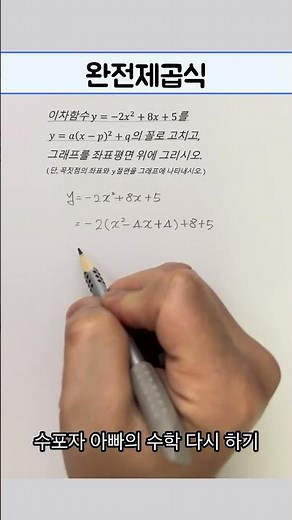 완전제곱식
이차함수 y = −2x² + 8x + 5를
y = a(x − p)² + q의 꼴로 고치고,
그래프를 좌표평면 위에 그리시오.
(단, 꼭짓점의 좌표와 y절편을 그래프에 나타내시오.)
y = −2x² + 8x + 5
= −2(x² − 4x + 4) + 8 + 5
수포자 아빠의 수학 다시 하기